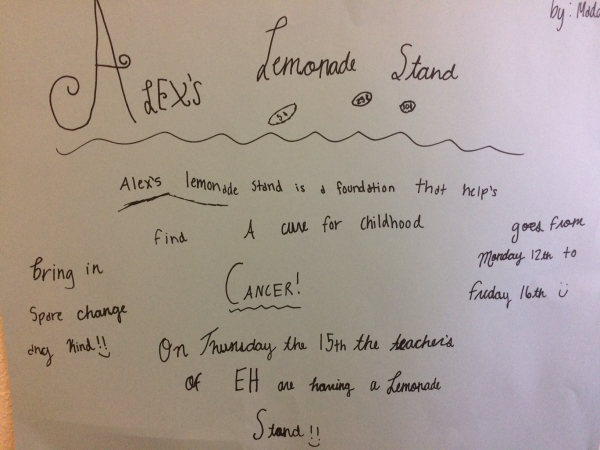 by: Madd
ALEX'S Lemonade Stand
5¢ 25¢ 10¢
Alex's lemonade stand is a foundation that help's
find A cure for childhood
CANCER!
bring in
spare change
any kind!!
goes from
Monday 12th to
friday 16th
On Thursday the 15th the teacher's
of EH are having a Lemonade
Stand!!